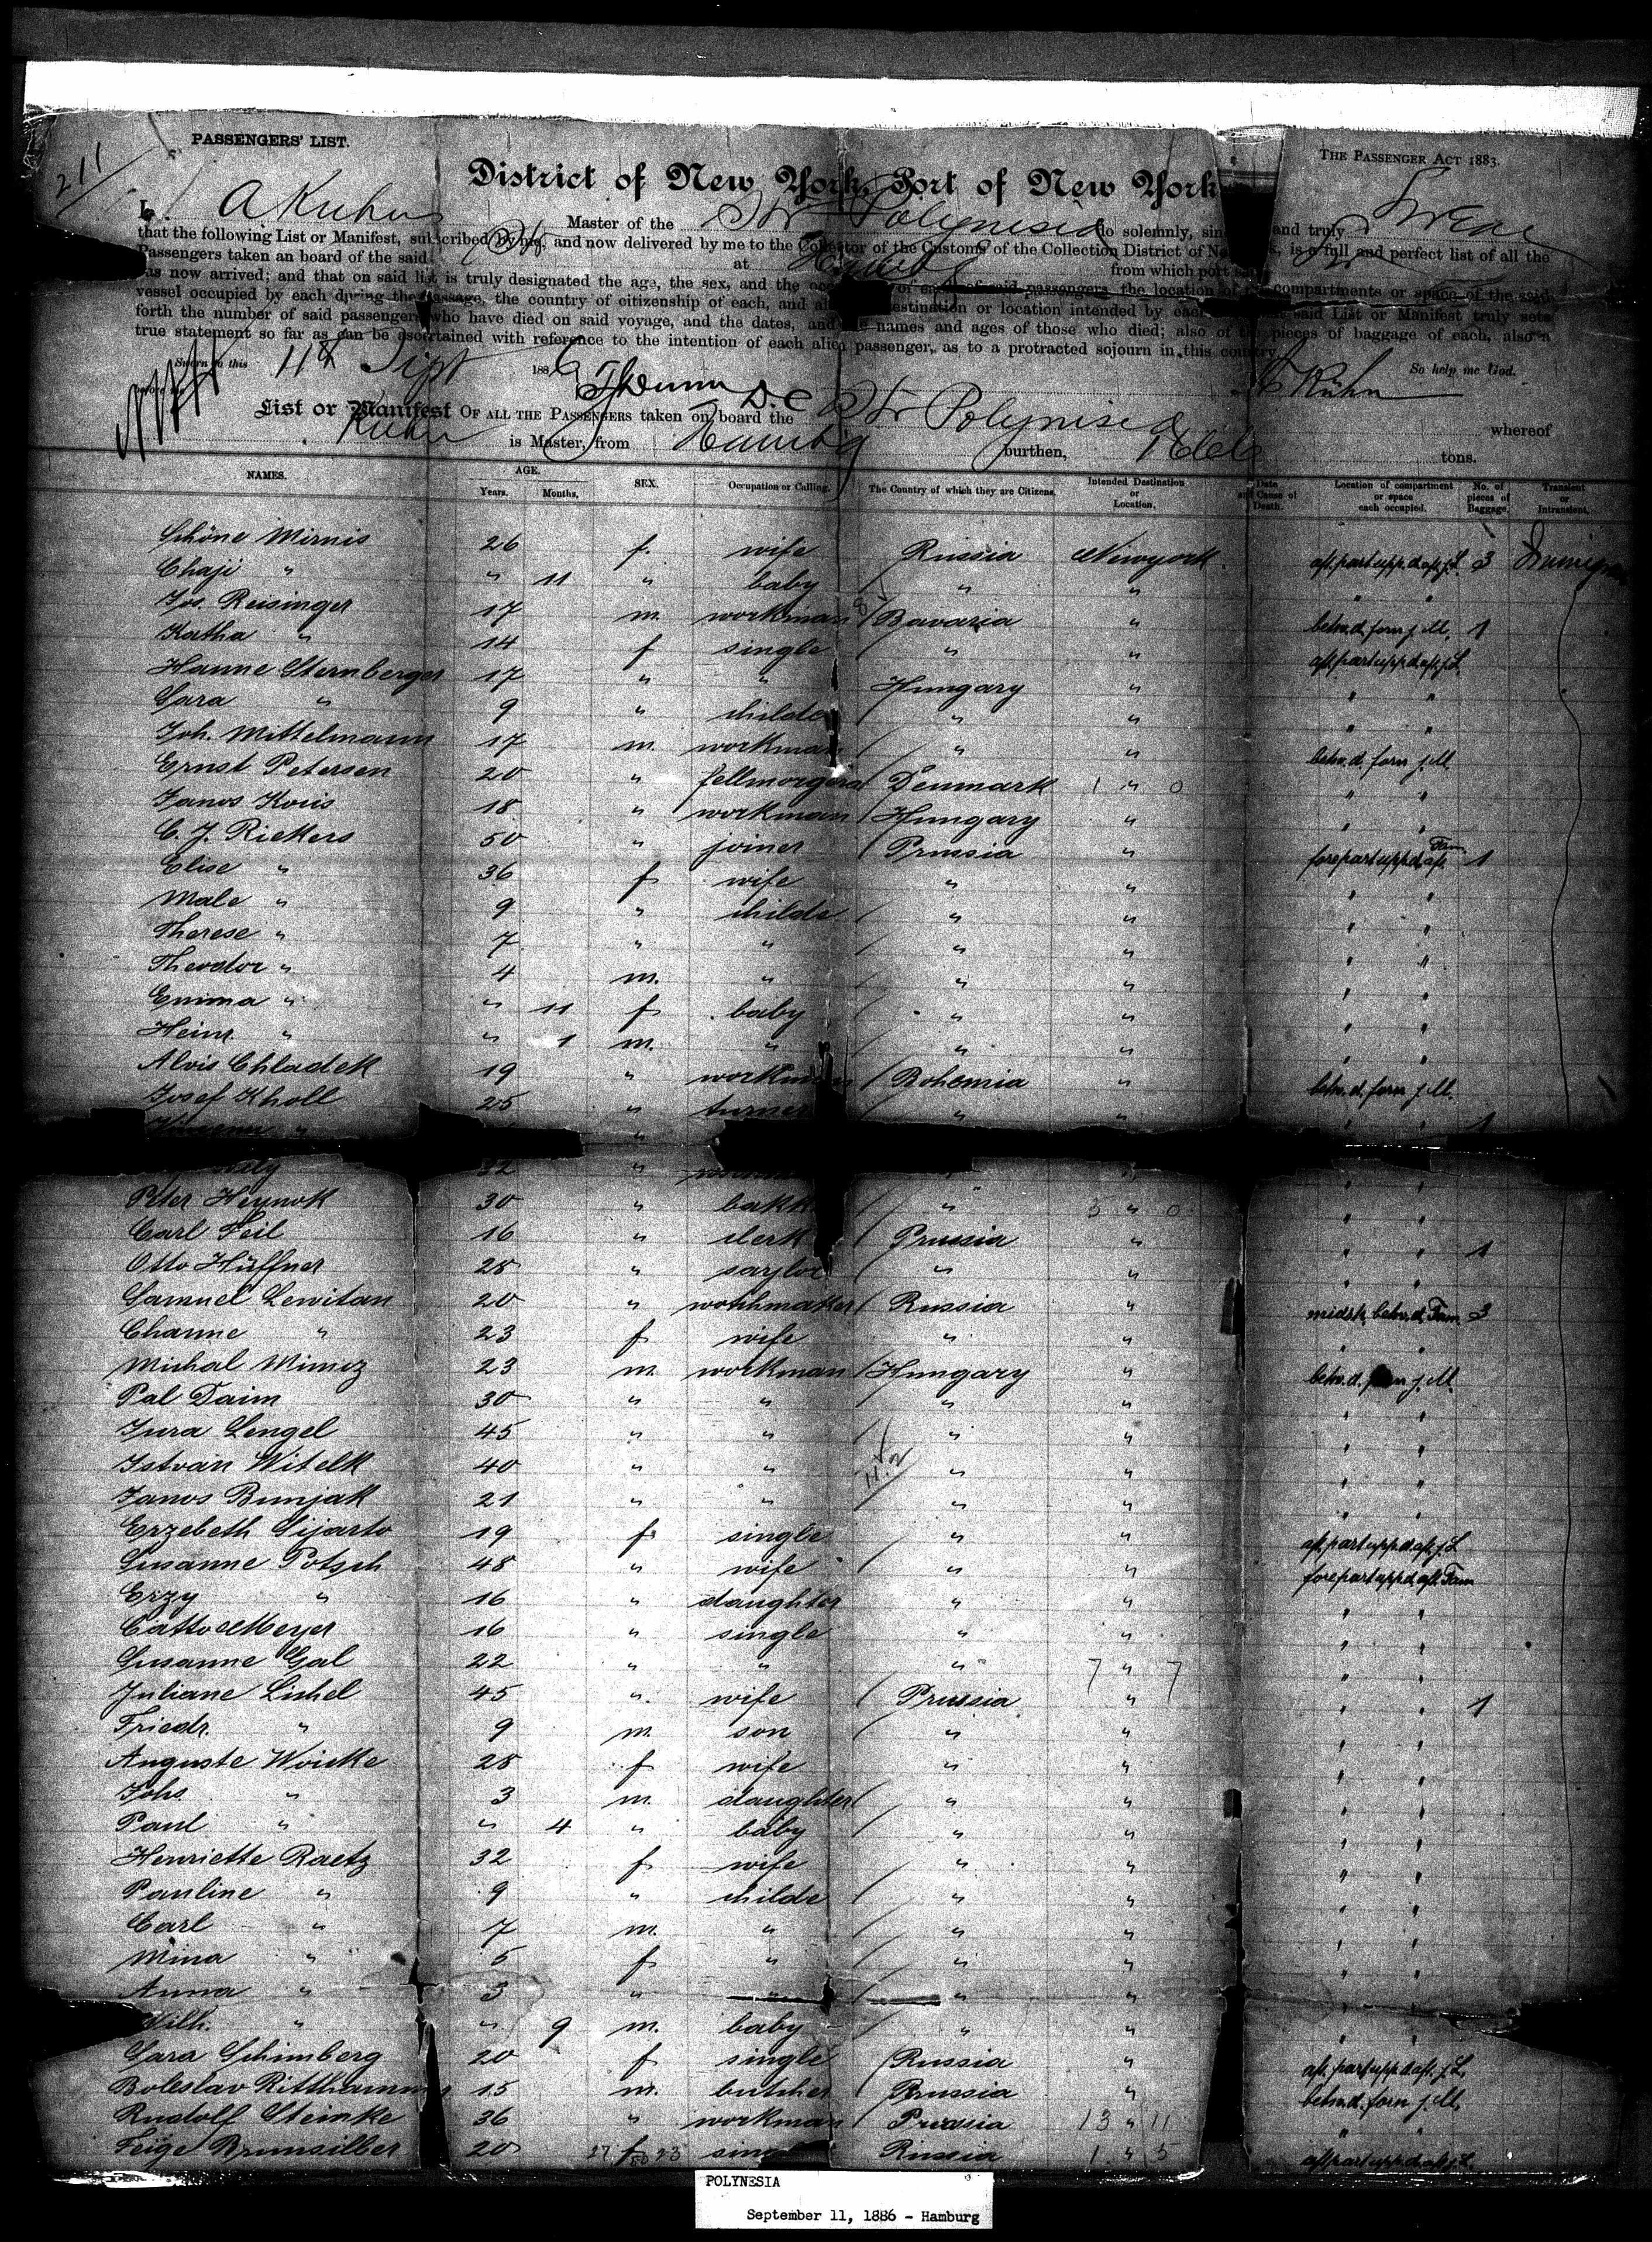 211
PASSENGERS' LIST.
THE PASSENGER ACT 1883.
District of New York, Port of New York
I, A Kuhn Master of the Str Polynesia do solemnly, and truly Swear
that the following List or Manifest, subscribed by me, and now delivered by me to the Collector of the Customs of the Collection District of New York, is a full and perfect list of all the
Passengers taken on board of the said Str at Hamburg from which port
has now arrived; and that on said list is truly designated the age, the sex, and the of each of said passengers, the location of the compartments or space of the said
vessel occupied by each during the passage, the country of citizenship of each, and also destination or location intended by each said List or Manifest truly sets
forth the number of said passengers who have died on said voyage, and the dates, and the names and ages of those who died; also of the pieces of baggage of each, also a
true statement so far as can be ascertained with reference to the intention of each alien passenger, as to a protracted sojourn in this country
Sworn to this 11th Sept 1886 So help me God.
A Kühn
List or Manifest OF ALL THE PASSENGERS taken on board the Str Polynesia whereof
Kuhn is Master, from Hamburg burthen, tons.
NAMES. AGE. Years. Months. SEX. Occupation or Calling. The Country of which they are Citizens. Intended Destination or Location. Date and Cause of Death. Location of compartment or space each occupied. No. of pieces of Baggage. Transient or Intransient.
Schöne Mirnis 26 f. wife Russia Newyork aft. part upp. d. aft. j. L. 3
Chaji " " 11 " baby " " " "
Jos. Reisinger 17 m. workman Bavaria " betw. d. forn j. M. 1
Katha " 14 f single " " aft. part upp d aft. j. L.
Hanne Sternberger 17 " " Hungary " " "
Sara " 9 " childe " " " "
Joh. Mittelmann 17 m workman " " betw. d. forn j. M.
Ernst Petersen 20 " fellmorgera Denmark 1 " 0 " "
Janos Kovis 18 " workman Hungary " " "
C. J. Riekers 50 " joiner Prussia " forepart upp d. aft. Fam 1
Elise " 36 f wife " " " "
Male " 9 " childe " " " "
Therese " 7 " " " " " "
Theodor " 4 m. " " " " "
Emma " " 11 f baby " " " "
Heinr. " " 1 m. " " " " "
Alois Chladek 19 " workman Bohemia " betw. d. forn j. M.
Josef Kholl 25 " turner " " " " 1
" "
32 "
Peter Heynok 30 " " 3 " 0 " "
Carl Feil 16 " clerk Prussia " " " 1
Otto Hüffner 28 " saylor " " " "
Samuel Lewitan 20 " wotchmaker Russia " midsh. betw. d. Fam. 3
Channe " 23 f wife " " " "
Michal Mimcz 23 m. workman Hungary " betw. d. forn j. M.
Pal Daim 30 " " " " " "
Jura Lengel 45 " " " " " "
Istvan Witelk 40 " " " " " "
Janos Bunjak 21 " " " " " "
Erzebeth Sijarto 19 f single " " aft. part upp. d. aft. j. L
Susanne Potsch 48 " wife " " forepart upp d. aft. Fam
Erzy " 16 " daughter " " " "
Catto Meyer 16 " single " " " "
Susanne Gal 22 " " " 7 " 7 " "
Juliane Lishel 45 " wife Prussia " " " 1
Friedr. " 9 m. son " " " "
Auguste Woicke 28 f wife " " " "
Johs. " 3 m. daughter " " " "
Paul " " 4 " baby " " " "
Henriette Raetz 32 f wife " " " "
Pauline " 9 " childe " " " "
Carl " 7 m. " " " " "
Mina " 5 f " " " " "
Anna " 3 " " " " " "
Wilh. " " 9 m. baby " " " "
Sara Schimberg 20 f single Russia " aft. part upp. d. aft. j. L.
Boleslav Ritthammer 15 m. butcher Prussia " betw. d. forn j. M.
Rudolf Steinke 36 " workman Prussia 13 " 11 " "
Feige Brunsilber 20 27 f 23 single Russia 1 " 5 aft part upp d. aft. j. L.
POLYNESIA
September 11, 1886 - Hamburg